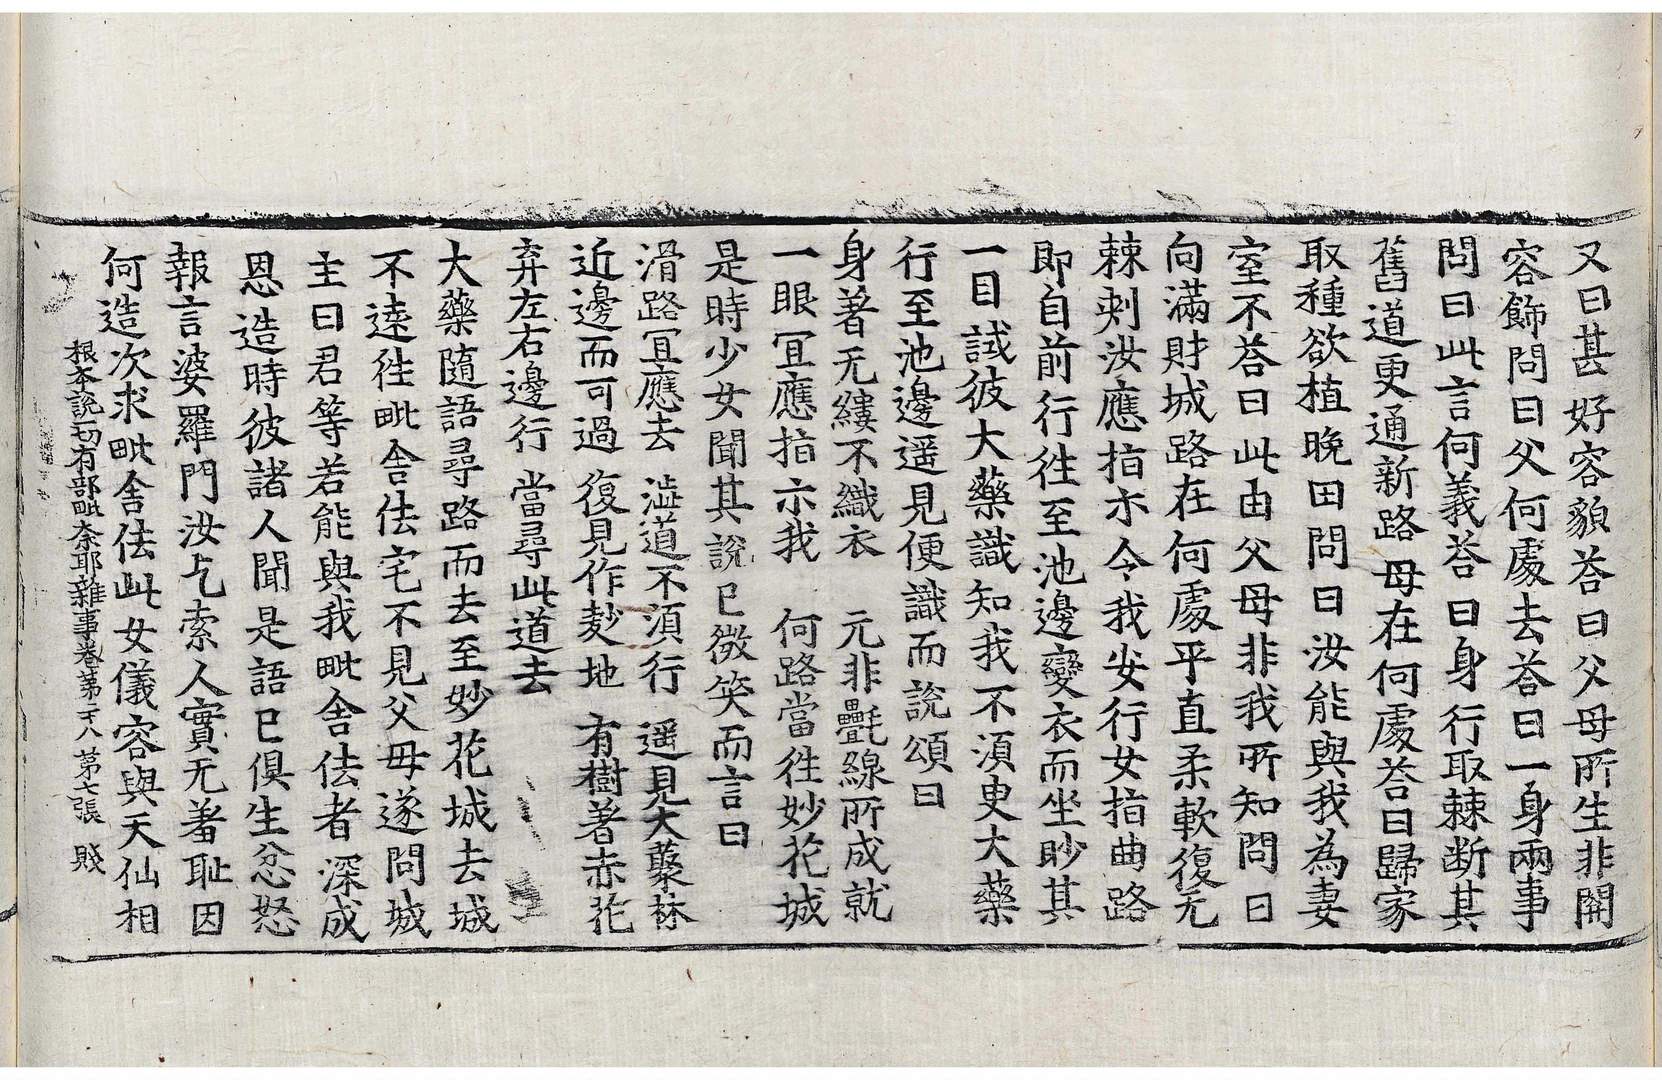 又曰甚好容貌荅曰父母所生非開
容飾問曰父何處去荅曰一身兩事
問曰此言何義荅曰身行取棘断其
舊道更通新路母在何處荅曰歸家
取種欲植晚田問曰汝能與我為妻
室不荅曰此由父母非我所知問曰
向滿財城路在何處平直柔軟復无
棘刺汝應指示今我安行女指曲路
即自前行往至池邊變衣而坐眇其
一目試彼大藥識知我不須臾大藥
行至池邊遥見便識而說頌曰
身著无縷不織衣 元非㲲線所成就
一眼冝應指示我 何路當往妙花城
是時少女聞其說已微笑而言曰
滑路冝應去 澁道不須行 遥見大藂林
近邊而可過 復見作麨地 有樹著赤花
弃左右邊行 當尋此道去
大藥隨語尋路而去至妙花城去城
不遠往毗舍佉宅不見父母遂問城
主曰君等若能與我毗舍佉者深成
恩造時彼諸人聞是語已俱生忿怒
報言婆羅門汝乞索人實无羞耻因
何造次求毗舍佉此女儀容與天仙相
根本說一切有部毗奈耶雜事卷第廿八 第七張 賤